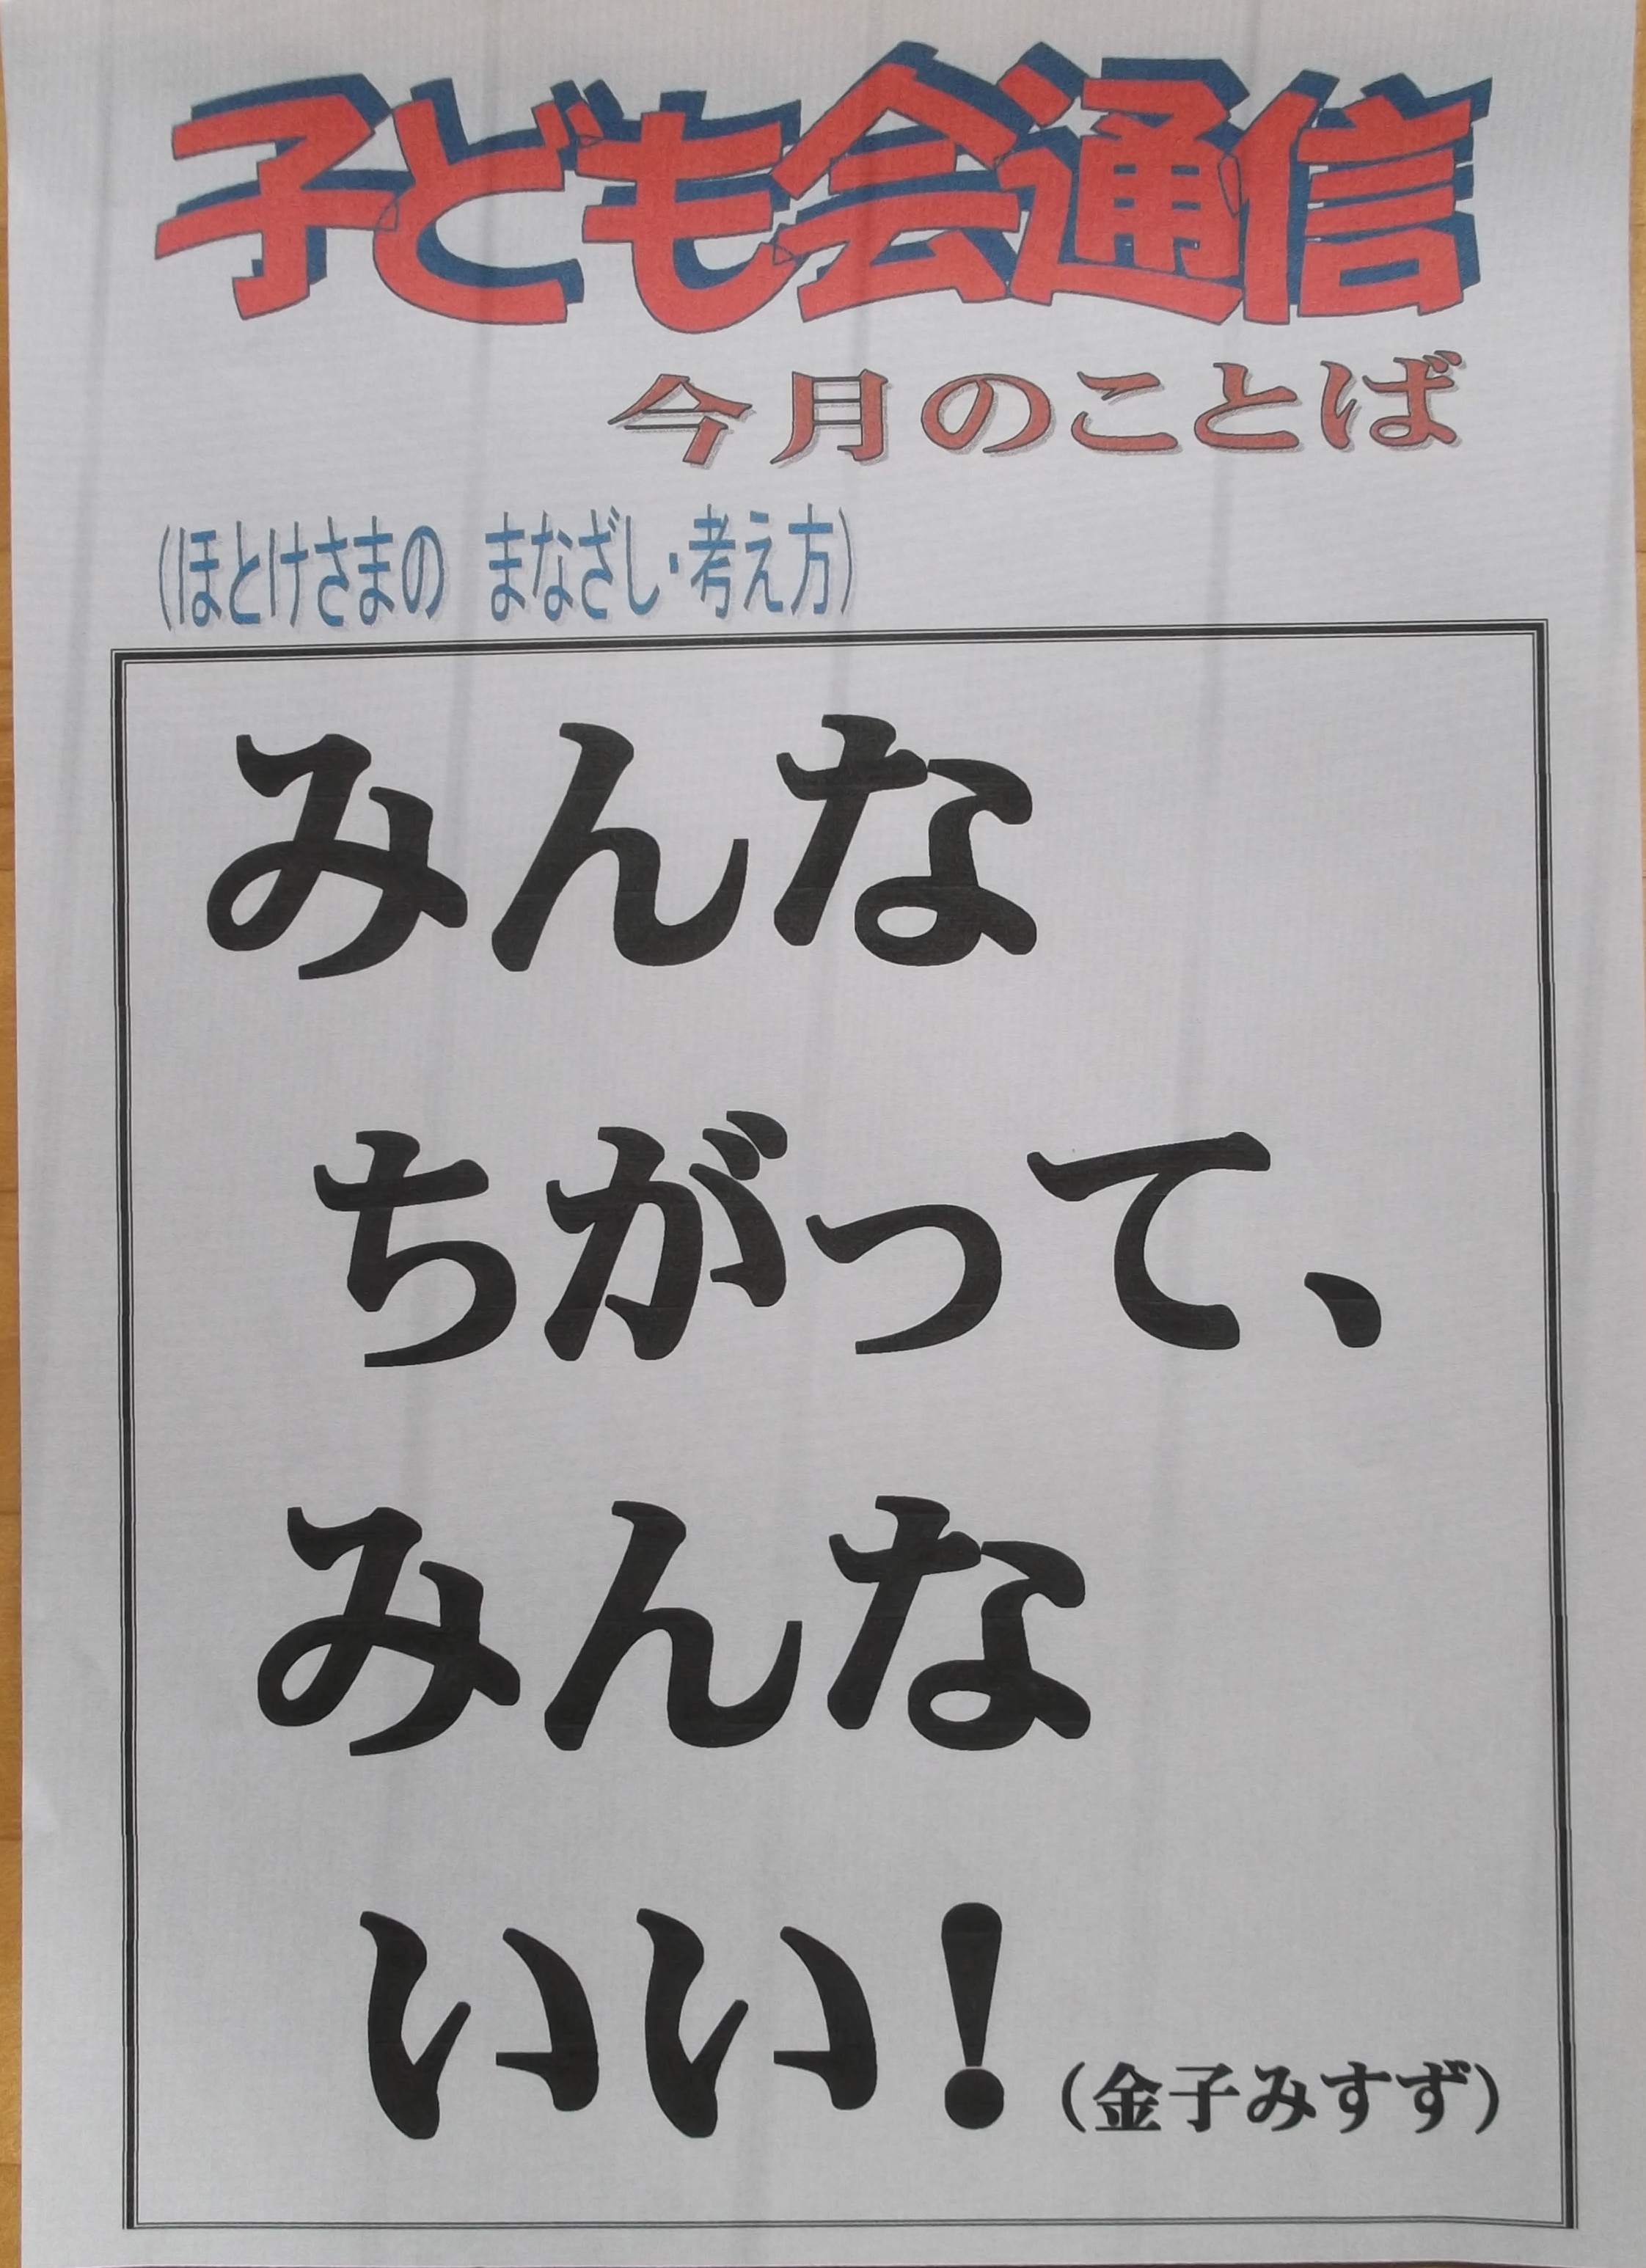 子ども会通信
今月のことば
(ほとけさまの　まなざし・考え方)
みんな
ちがって、
みんな
いい!
(金子みすず)